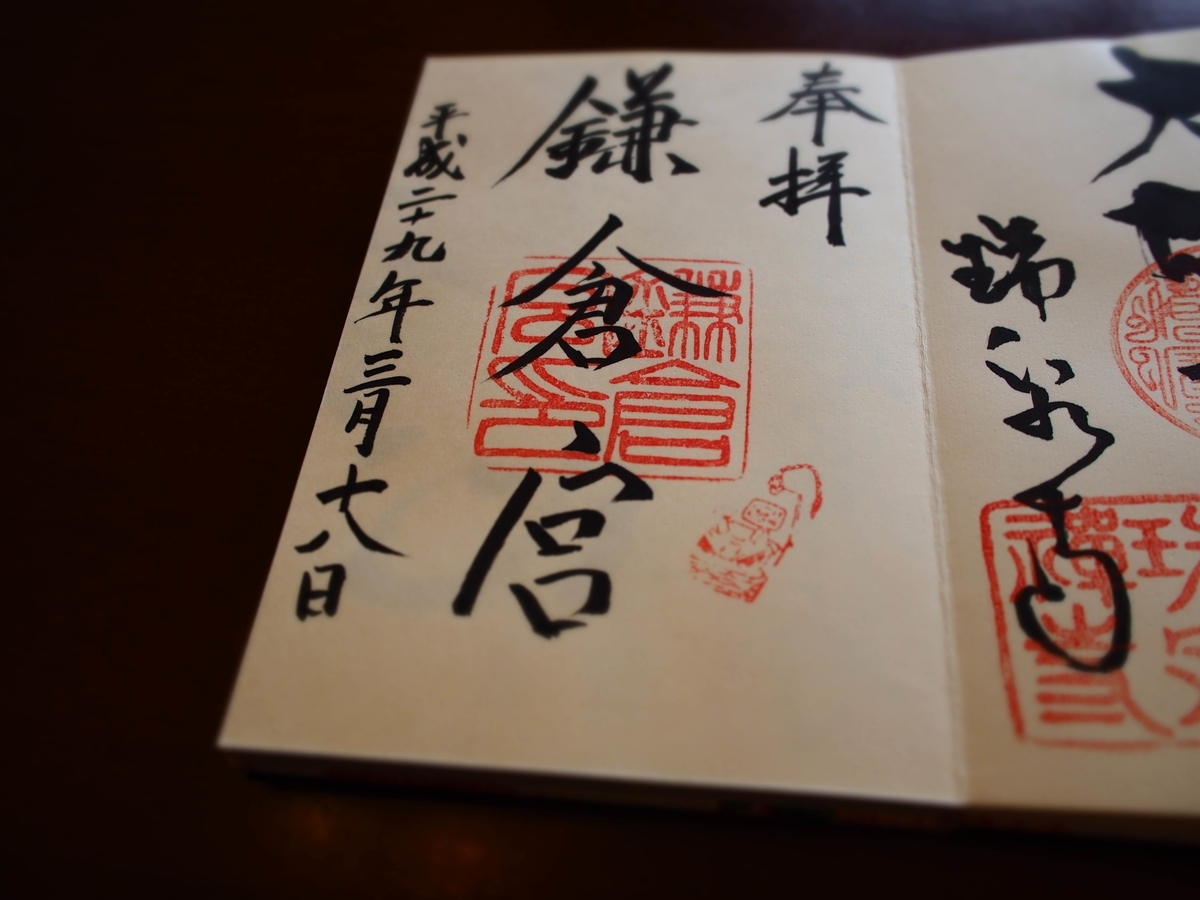 瑞泉寺
奉拝
鎌倉宮
鎌倉
宮印
平成二十九年三月十八日